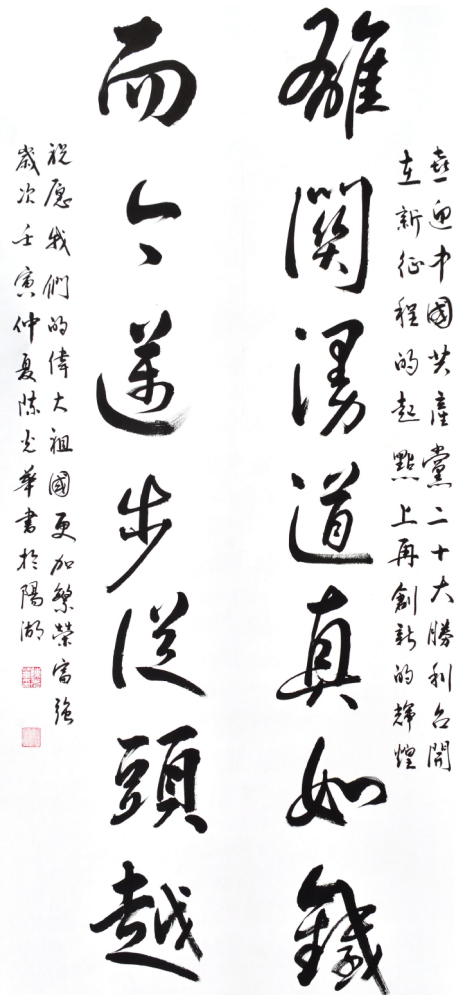 喜迎中國共產黨二十大勝利召開
在新征程的起點上再創新的輝煌
雄關漫道真如鐵
而今邁步從頭越
祝愿我們的偉大祖國更加繁榮富强
歲次壬寅仲夏陳光華書於陽湖